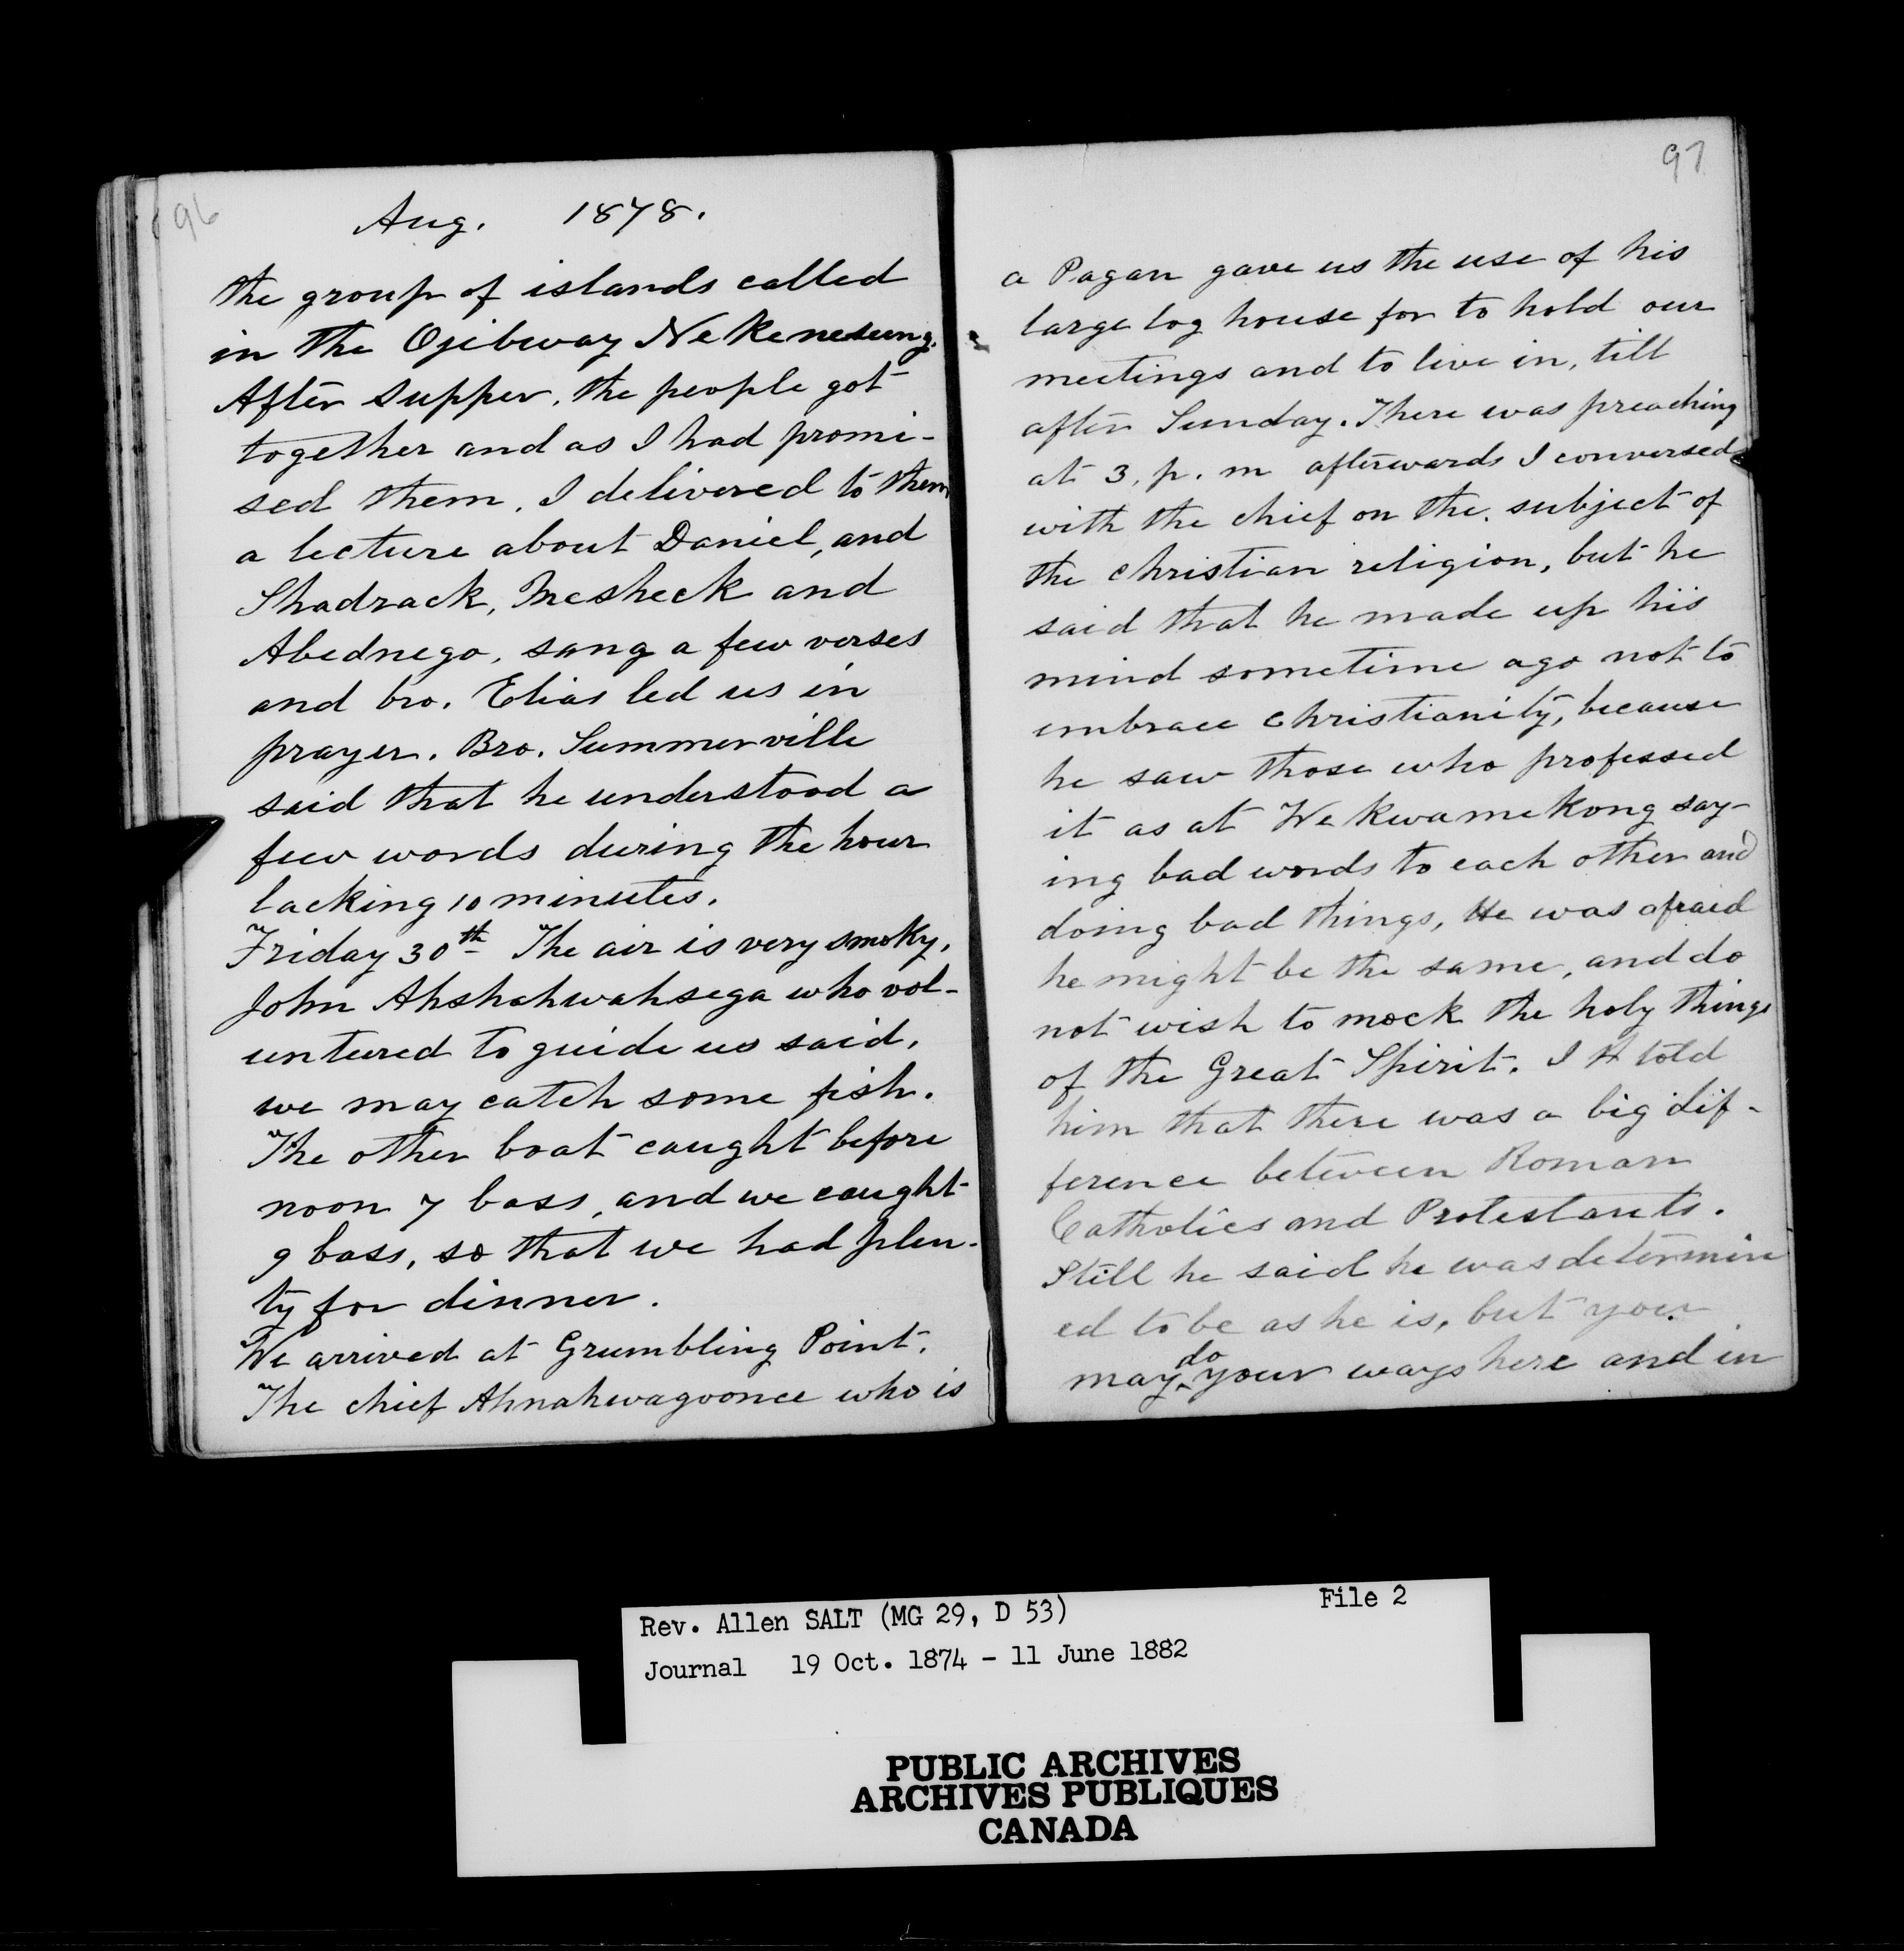 96
Aug. 1878.
the group of islands called
in the Ojibway Nekenesung.
After supper, the people got
together and as I had promi-
sed them, I delivered to them
a lecture about Daniel, and
Shadrack, Mesheck and
Abednego, sang a few verses
and bro. Elias led us in
prayer. Bro. Summerville
said that he understood a
few words during the hour
lacking 10 minutes.
Friday 30th The air is very smoky.
John Ahshahwahsega who vol-
untured to guide us said,
we may catch some fish.
The other boat caught before
noon 7 bass, and we caught
9 bass, so that we had plen-
ty for dinner.
We arrived at Grumbling Point.
The chief Ahnahwagoonce who is
97
a Pagan gave us the use of his
large log house for to hold our
meetings and to live in, till
after Sunday. There was preaching
at 3, p. m afterwards I conversed
with the chief on the subject of
the christian religion, but he
said that he made up his
mind sometime ago not to
embrace christianity, because
he saw those who professed
it as at Wekwamekong say-
ing bad words to each other and
doing bad things, He was afraid
he might be the same, and do
not wish to mock the holy things
of the Great Spirit. I told
him that there was a big dif-
ference between Roman
Catholics and Protestants.
Still he said he was determin
ed to be as he is, but you
may do your ways here and in
Rev. Allen SALT (MG 29, D 53) File 2
Journal 19 Oct. 1874 - 11 June 1882
PUBLIC ARCHIVES
ARCHIVES PUBLIQUES
CANADA